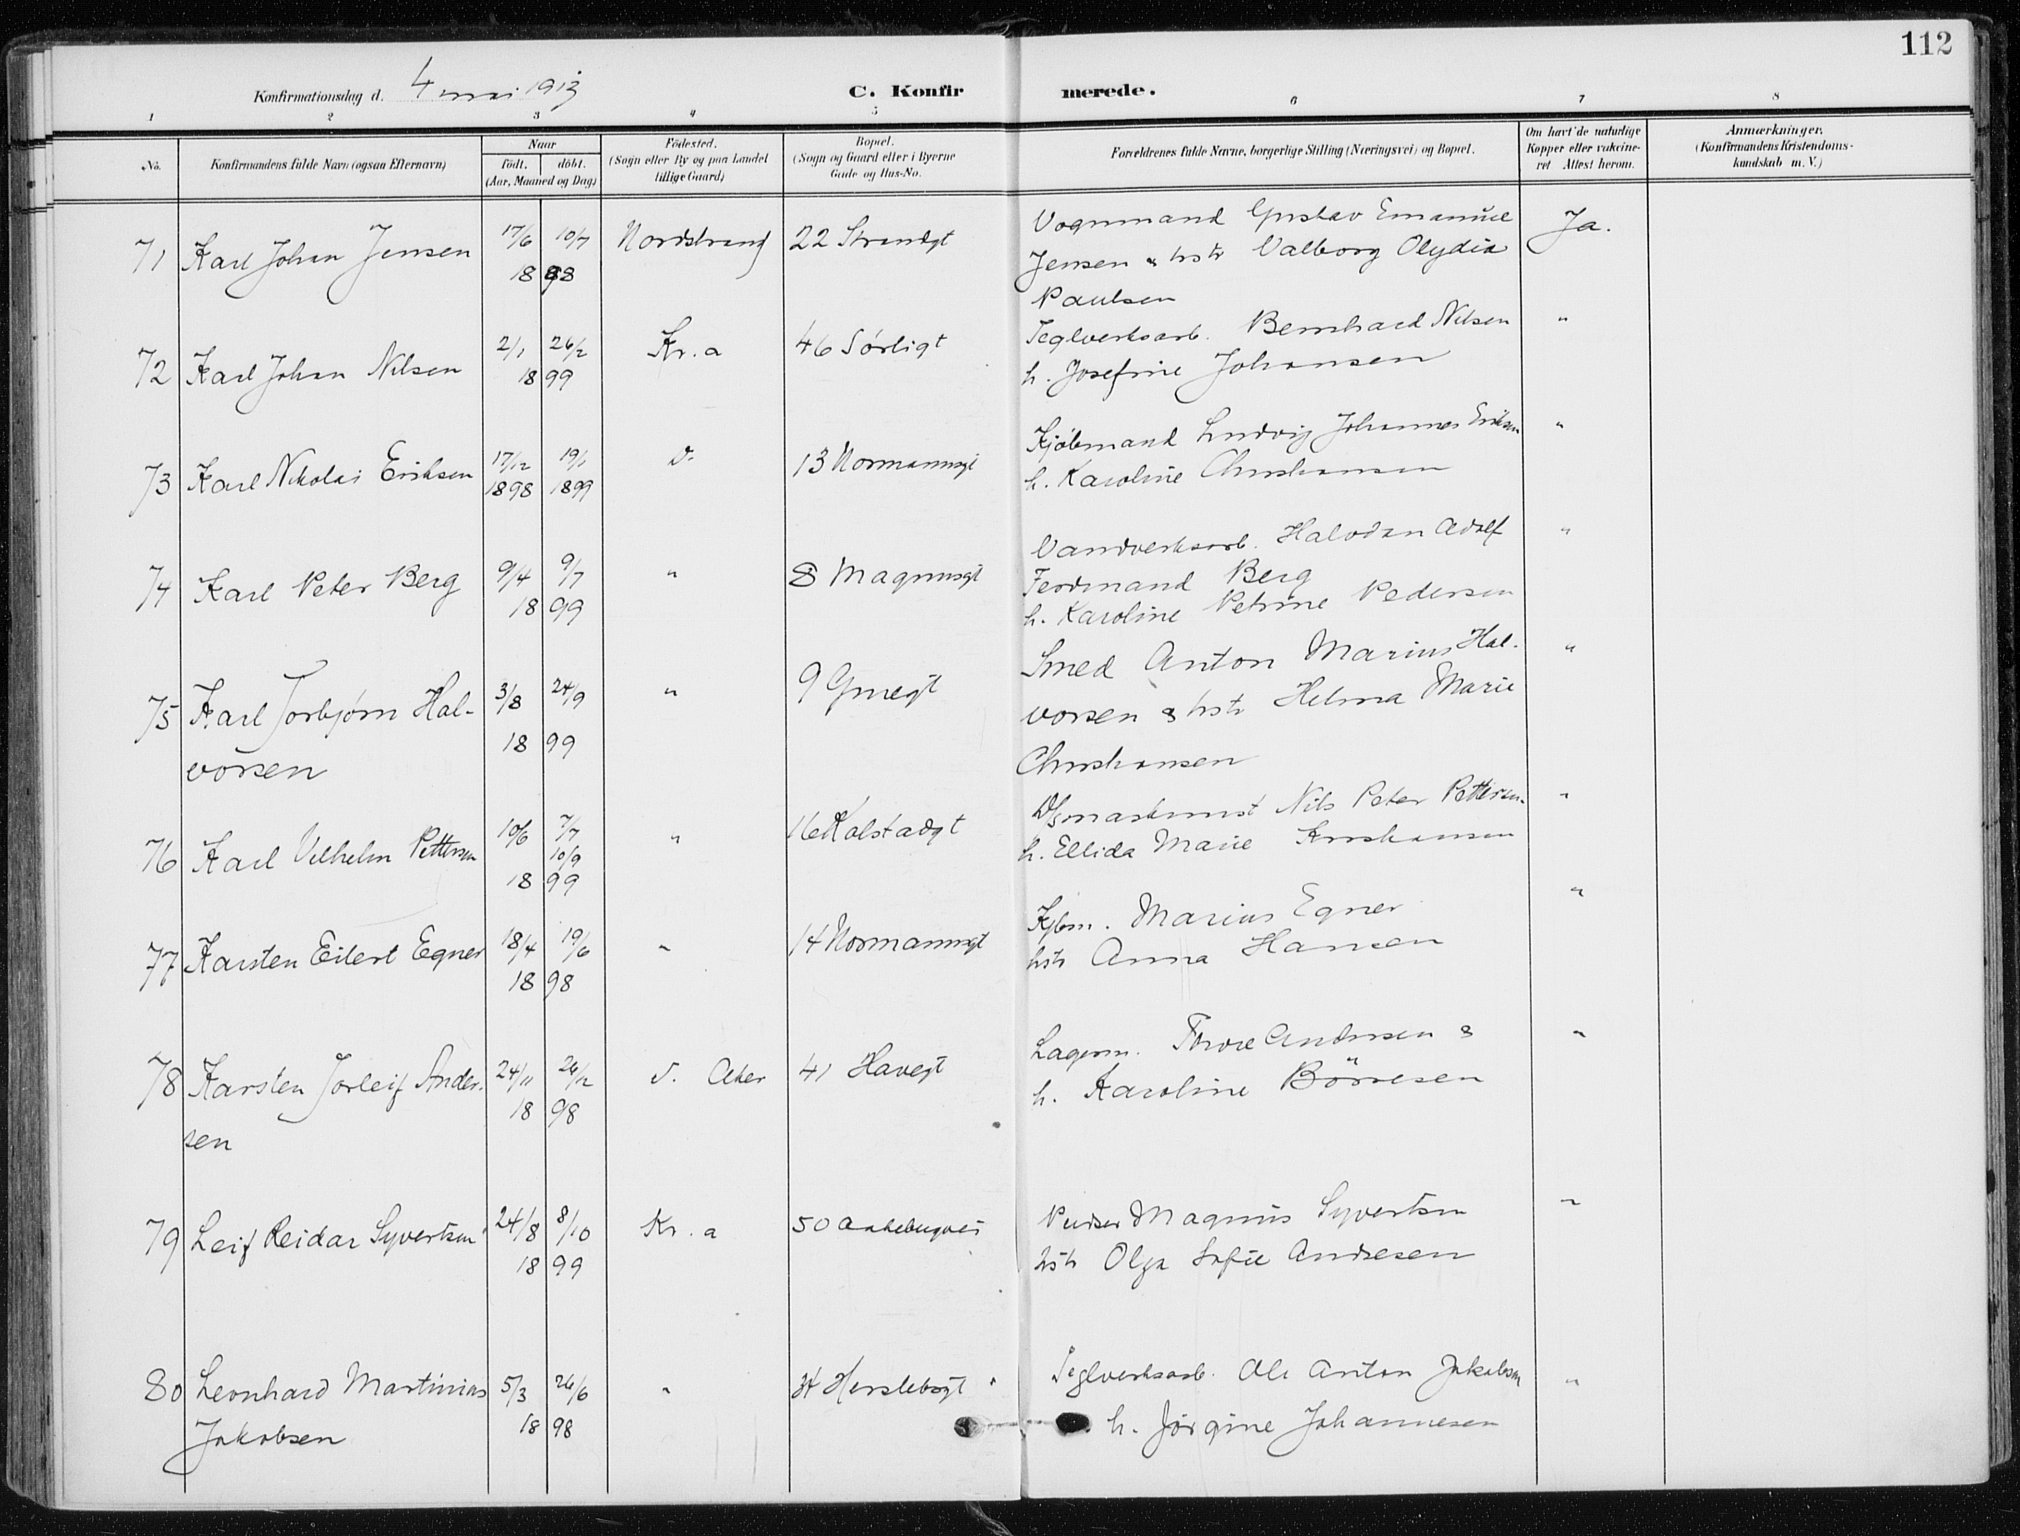 112
Konfirmationsdag d. 4 mai 1913
C. Konfirmerede.
1 2 3 4 5 6 7 8
No.
Konfirmandens fulde Navn (ogsaa Efternavn)
Naar
født. døbt.
(Aar, Maaned og Dag)
Fødested.
(Sogn eller By og paa Landet
tillige Gaard)
Bopæl.
(Sogn og Gaard eller i Byerne
Gade og Hus-No.
Forældrenes fulde Navne, borgerlige Stilling (Næringsvei) og Bopæl.
Om havt de naturlige
Kopper eller vakcine-
ret Attest herom.
Anmærkninger.
(Konfirmandens Kristendoms-
kundskab m. V.)
71 Karl Johan Jensen 17/6 10/7 Nordstrand 22 Strandgt Vognmand Gustav Emanuel Ja.
18 98 Jensen & hstr Valborg Olydia
Paulsen
72 Karl Johan Nilsen 2/1 26/2 Kr.a 46 Sørligt Teglverksarb. Bernhard Nilsen "
18 99 h. Josefine Johansen
73 Karl Nikolai Eriksen 17/12 19/1 D. 13 Normannsgt Kjøbmand Ludvig Johannes Eriksen "
1898 1899 h. Karoline Christiansen
74 Karl Peter Berg 9/4 9/7 " 8 Magnusgt Vandverksarb. Halvdan Adolf "
18 99 Ferdinand Berg
h. Karoline Petrine Pedersen
75 Karl Torbjørn Hal- 3/8 24/9 " 9 Gruegt Smed Anton Marius Hal- "
vorsen 18 99 vorsen & hstr Helma Marie
Christiansen
76 Karl Vilhelm Pettersen 10/6 7/7 " 16 Kolstadgt Nils Peter Pettersen "
10/9 h. Ellida Marie Kristiansen
18 99
77 Karsten Eilert Egner 18/4 19/6 " 14 Normannsgt Kjbm. Marius Egner "
18 98 hstr Anna Hansen
78 Karsten Torleif Ander- 24/11 26/12 V. Aker 41 Havegt Lagerm. Andersen & "
sen 18 98 h. Karoline Børresen
79 Leif Reidar Syvertsen 24/8 8/10 Kr.a 50 Aakebergvei Pudser Magnus Syvertsen "
18 99 hstr Olga Sofie Andresen
80 Leonhard Martinius 5/3 26/6 " 24 Herslebsgt Teglverksarb. Ole Anton Jakobsen "
Jakobsen 18 98 h. Jørgine Johannesen